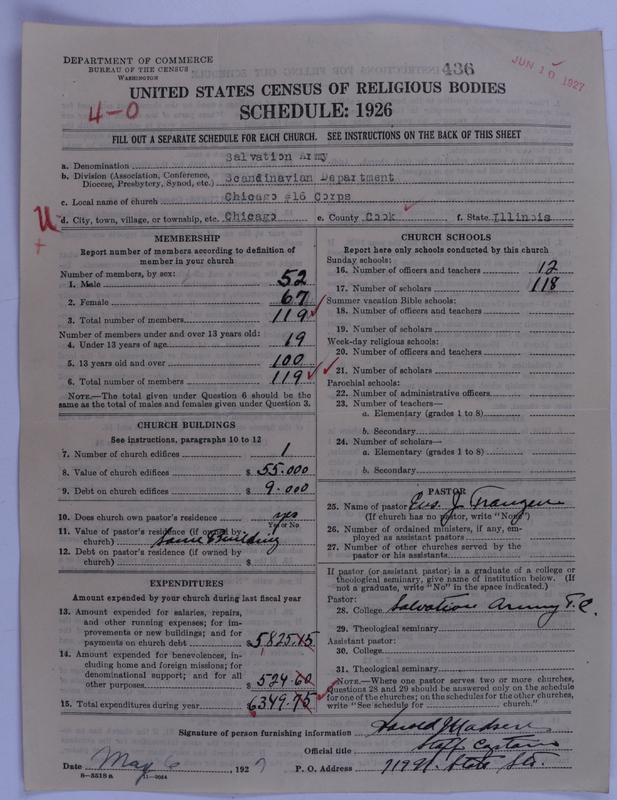 DEPARTMENT OF COMMERCE
BUREAU OF THE CENSUS
WASHINGTON
436
JUN 10 1927
UNITED STATES CENSUS OF RELIGIOUS BODIES
4-0
SCHEDULE: 1926
FILL OUT A SEPARATE SCHEDULE FOR EACH CHURCH. SEE INSTRUCTIONS ON THE BACK OF THIS SHEET
a. Denomination Salvation Army
b. Division (Association, Conference, Diocese, Presbytery, Synod, etc.) Scandinavian Department
c. Local name of church Chicago #16 Corps
d. City, town, village, or township, etc. Chicago e. County Cook f. State Illinois
MEMBERSHIP
Report number of members according to definition of
member in your church
Number of members, by sex:
1. Male 52
2. Female 67
3. Total number of members 119
Number of members under and over 13 years old:
4. Under 13 years of age 19
5. 13 years old and over 100
6. Total number of members 119
NOTE.—The total given under Question 6 should be
same as the total of males and females given under Question 3.
CHURCH BUILDINGS
See instructions, paragraphs 10 to 12
7. Number of church edifices 1
8. Value of church edifices $ 55.000
9. Debt on church edifices $ 9.000
10. Does church own pastor's residence yes
Yes or No
11. Value of pastor's residence (if owned by
church) Same Building
12. Debt on pastor's residence (if owned by
church) $
EXPENDITURES
Amount expended by your church during last fiscal year
13. Amount expended for salaries, repairs,
and other running expenses; for im-
provements or new buildings; and for
payments on church debt $ 5825.15
14. Amount expended for benevolences, in-
cluding home and foreign missions; for
denominational support; and for all
other purposes $ 524.60
15. Total expenditures during year 6349.75
CHURCH SCHOOLS
Report here only schools conducted by this church
Sunday schools:
16. Number of officers and teachers 12
17. Number of scholars 118
Summer vacation Bible schools:
18. Number of officers and teachers
19. Number of scholars
Week-day religious schools:
20. Number of officers and teachers
21. Number of scholars
Parochial schools:
22. Number of administrative officers
23. Number of teachers—
a. Elementary (grades 1 to 8)
b. Secondary
24. Number of scholars—
a. Elementary (grades 1 to 8)
b. Secondary
PASTOR
25. Name of pastor J.
(If church has no pastor, write "None")
26. Number of ordained ministers, if any, em-
ployed as assistant pastors
27. Number of other churches served by the
pastor or his assistants
If pastor (or assistant pastor) is a graduate of a college or
theological seminary, give name of institution below. (If
not a graduate, write "No" in the space indicated.)
Pastor:
28. College Salvation Army T.C.
29. Theological seminary
Assistant pastor:
30. College
31. Theological seminary
NOTE.—Where one pastor serves two or more churches,
Questions 28 and 29 should be answered only on the schedule
for one of the churches; on the schedules for the other churches,
write "See schedule for church."
Signature of person furnishing information Harold J Madsen
Official title Staff Captain
Date May 6 1927 P. O. Address 719 N. State Str.
8-5518a 11-9064